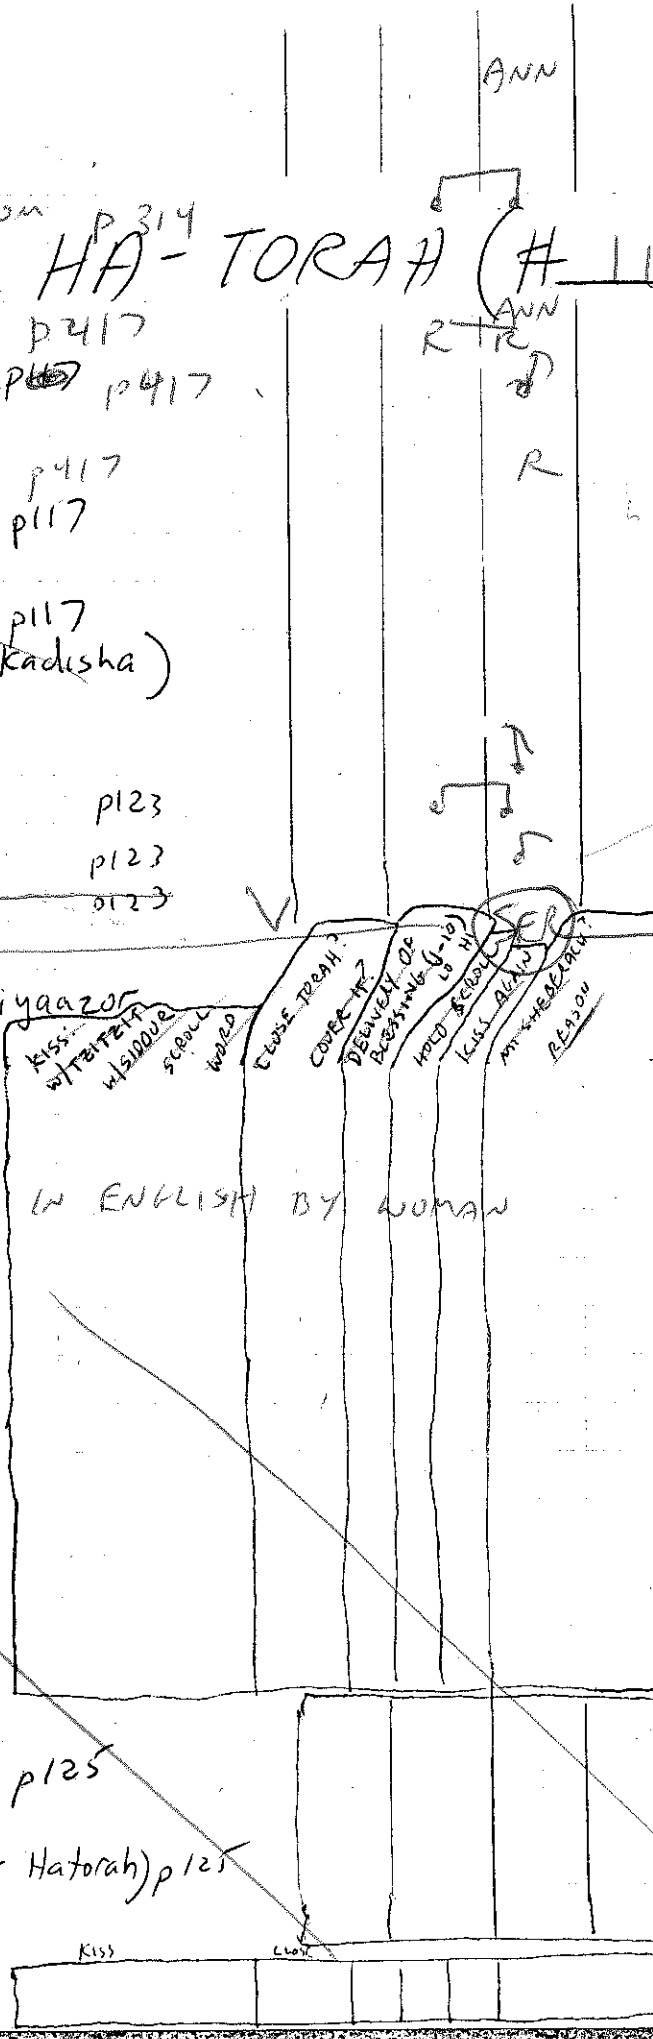 ANN
p 314
HA-TORAH (# 11
p217
ANN
R R
p417
R
p417
p117
p117
Kadisha)
p123
p123
p123
SER
iyaazor
KISS:
W/TZITZIT
W/SIDDUR
SCROLL
WORD
CLOSE TORAH?
COVER IT?
DELIVERY OF
BLESSING (1-10)
LO HI
HOLD SCROLL
KISS AGAIN
MI SHEBERACH?
REASON
IN ENGLISH BY WOMAN
p125
Hatorah) p125
KISS CLOSE